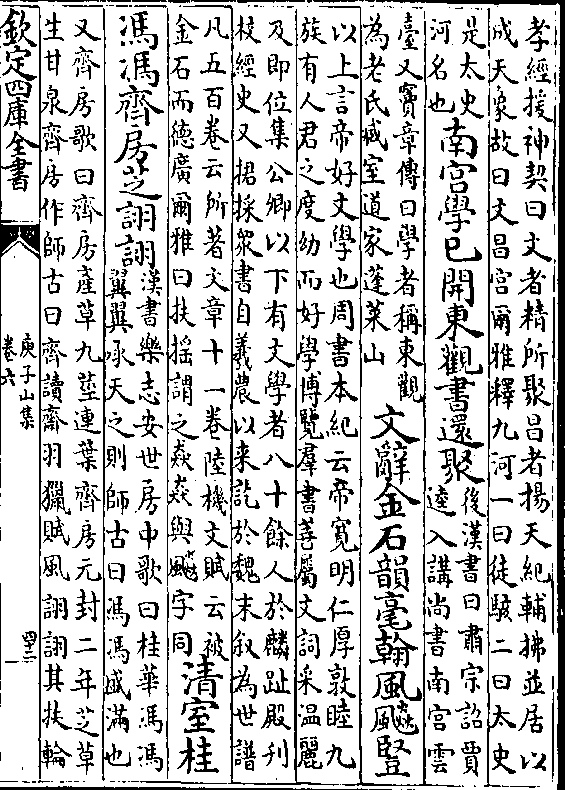 孝經援神契曰文者精所聚昌者揚天紀輔拂並居以
成天象故曰文昌宫爾雅釋九河一曰徒駭二曰太史
是太史
河名也
南宫學已開東觀書還聚
後漢書曰肅宗詔賈
逵入講尚書南宫雲
臺又竇章傳曰學者稱東觀
為老氏臧室道家蓬萊山
文辭金石韻毫翰風飈豎
以上言帝好文學也周書本紀云帝寛明仁厚敦睦九
族有人君之度幼而好學博覽羣書善屬文詞采温麗
及即位集公卿以下有文學者八十餘人於麟趾殿刋
校經史又捃採衆書自羲農以来訖於魏末叙為世譜
凡五百卷云所著文章十一卷陸機文賦云被
金石而德廣爾雅曰扶摇謂之猋猋與飈字同
清室桂
馮馮齊房芝詡詡
漢書樂志安世房中歌曰桂華馮馮
翼翼承天之則師古曰馮馮盛滿也
又齊房歌曰齊房產草九莖連葉齊房元封二年芝草
生甘泉齊房作師古曰齊讀齋羽獵賦風詡詡其扶輪
欽定四庫全書
庾子山集
卷六